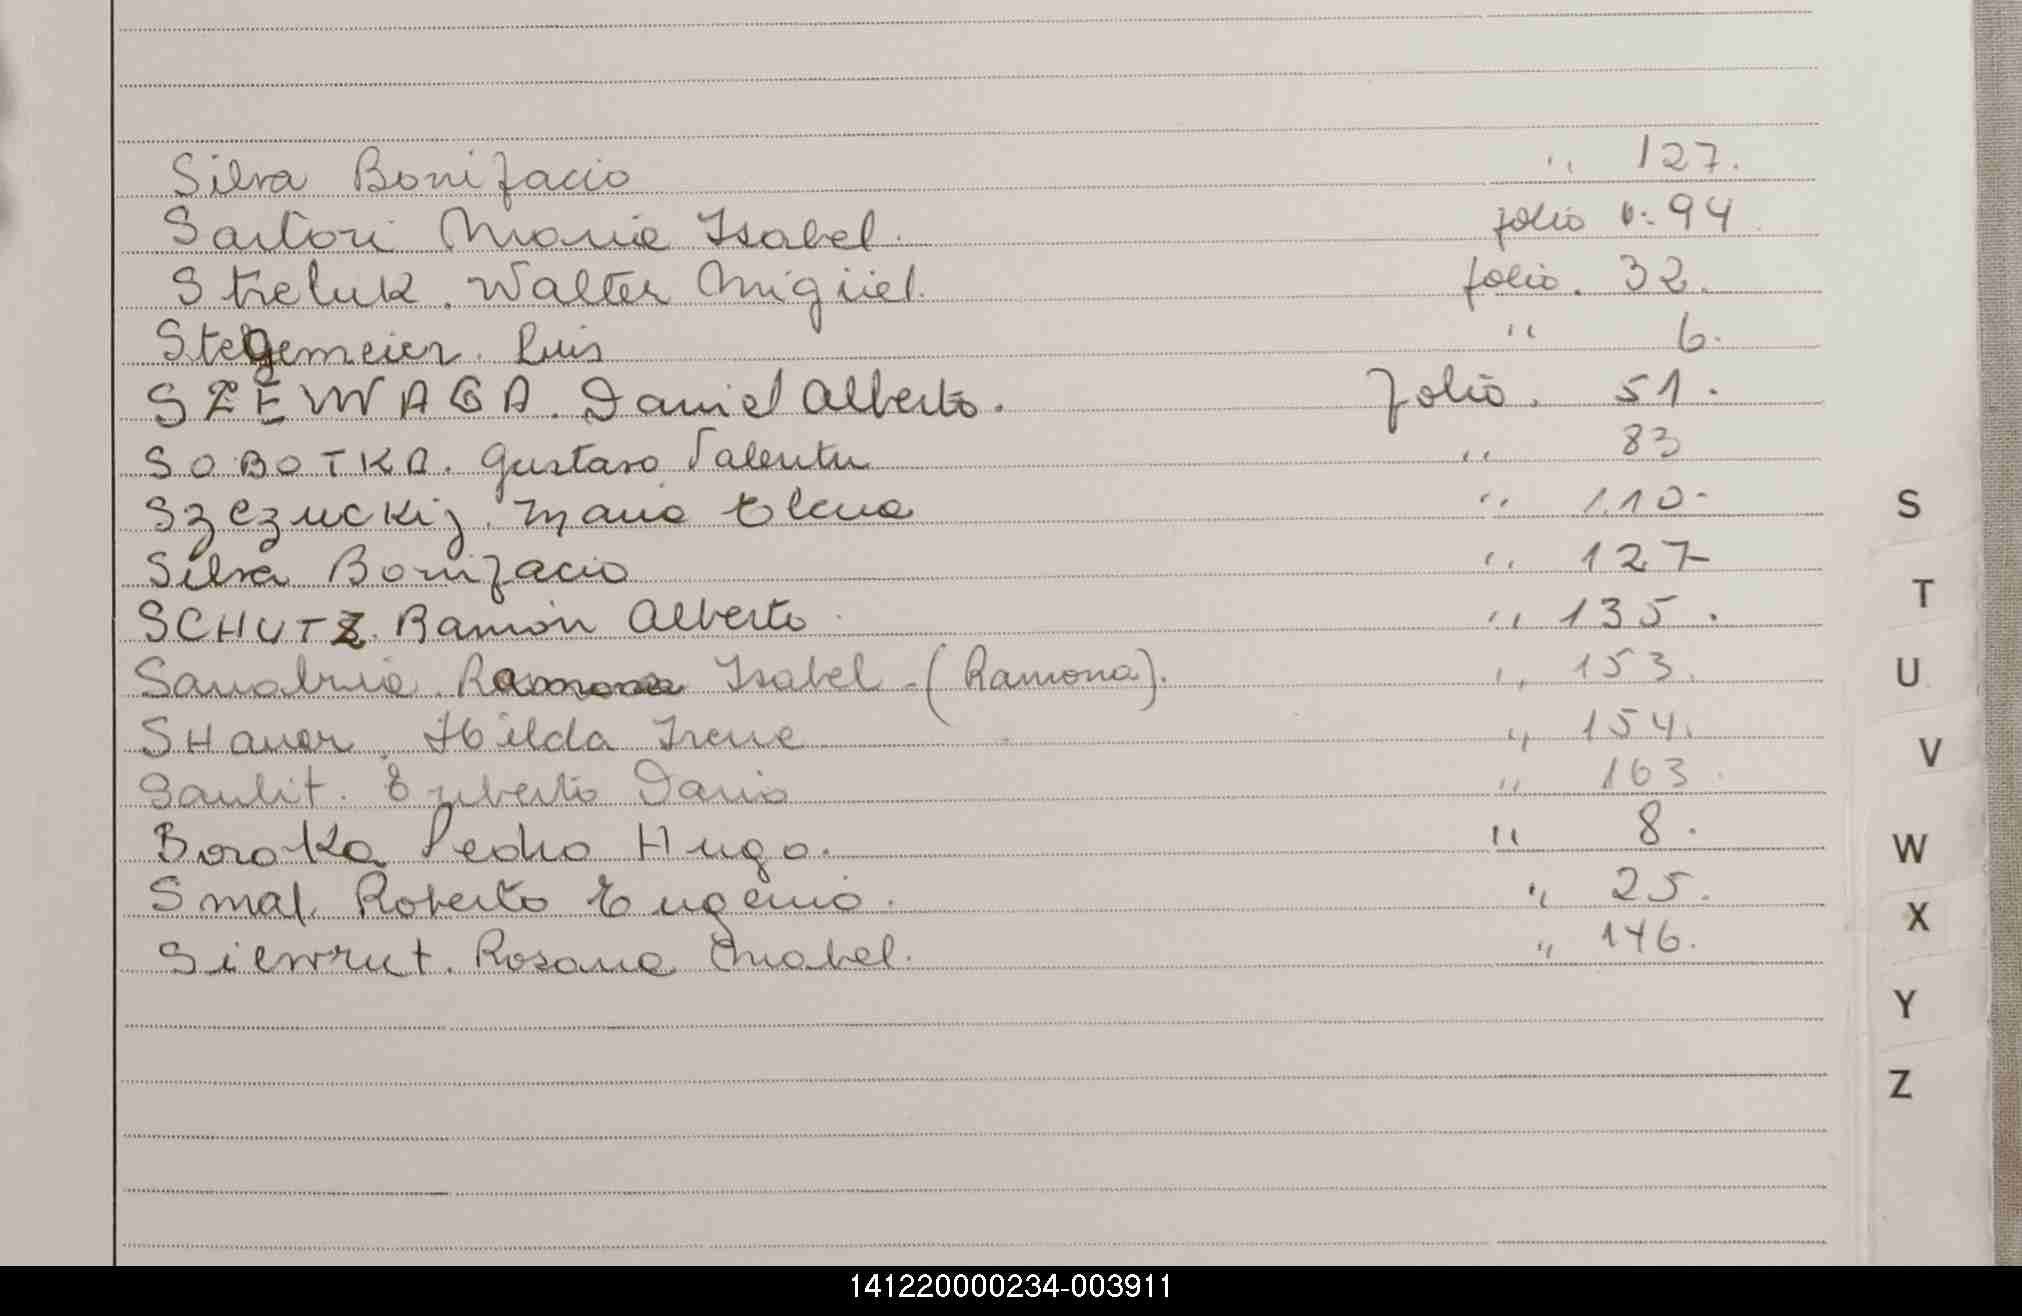 Silva Bonifacio " 127.
Sartori Maria Isabel. folio 0:94
Streluk. Walter Migüel. folio. 32.
Stegemeier. Luis " 6.
SZEWAGA. Daniel Alberto. folio. 51.
SOBOTKA. Gustavo Valentin " 83
Szczuckij. Maria Elena " 110.
Silva Bonifacio " 127
SCHUTZ. Ramón Alberto. " 135.
Sanabria. Ramona Isabel - (Ramona). " 153.
SHaner. Hilda Irene " 154.
Saulit. Dario " 163.
Boroka Pedro Hugo. " 8.
Smal. Roberto Eugenio. " 25.
Silvrut. Rosana Mabel. " 146.
S
T
U
V
W
X
Y
Z
141220000234-003911